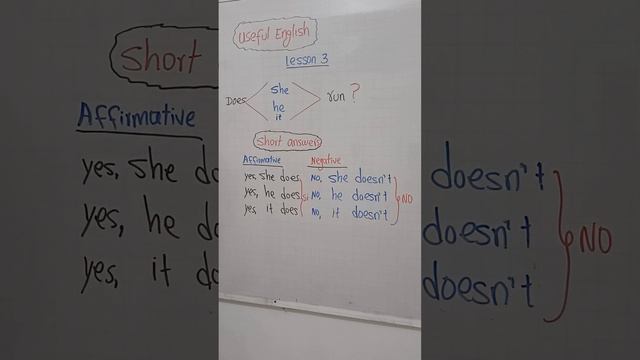 Useful English
Lesson 3
she
Does he run ?
it
Short answers
Affirmative Negative
yes, she does No, she doesn't
yes, he does Si No, he doesn't NO
yes, it does No, it doesn't
Short
Affirmative
yes, she do
yes, he do
yes, it do
doesn't
doesn't NO
doesn't